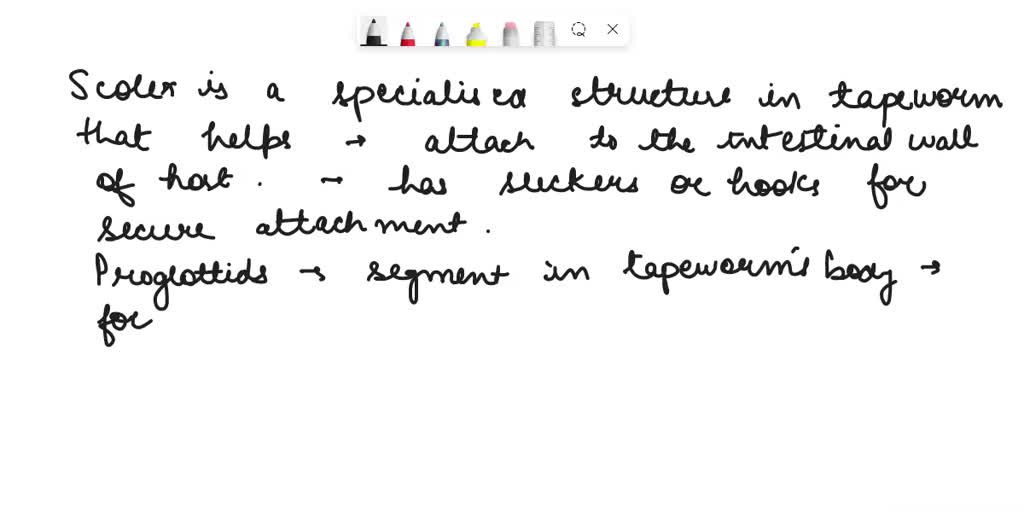 Scolex is a specialised structure in tapeworm
that helps → attach to the intestinal wall
of host. → has suckers or hooks for
secure attachment.
Proglottids → segment in tapeworm's body →
for